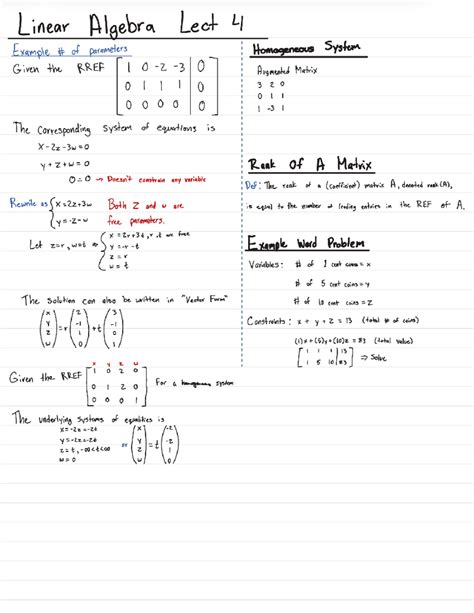 Linear Algebra Lect 4
Example # of parameters
Given the RREF [ 1 0 -2 -3 | 0
0 1 1 1 | 0
0 0 0 0 | 0 ]
The corresponding system of equations is
x-2z-3w=0
y+z+w=0
0=0 → Doesn't constrain any variable
Rewrite as { x=2z+3w Both z and w are
y=-z-w free parameters.
Let z=r, w=t ⇒ { x = 2r+3t, r, t are free
y = -r-t
z = r
w = t
The solution can also be written in "Vector Form"
(x y z w) = r (2 -1 1 0) + t (3 -1 0 1)
x y z w
Given the RREF [ 1 0 2 0
0 1 2 0
0 0 0 1 ] For a homogeneous system
The underlying systems of equalities is
x=-2z=-2t
y=-2z=-2t
z=t, -∞<t<∞
w=0
or (x y z w) = t (-2 -2 1 0)
Homogeneous System
Augmented Matrix
3 2 0
0 1 1
1 -3 1
Rank Of A Matrix
Def: The rank of a (coefficient) matrix A, denoted rank(A),
is equal to the number of leading entries in the REF of A.
Example Word Problem
Variables: # of 1 cent coins = x
# of 5 cent coins = y
# of 10 cent coins = z
Constraints: x + y + z = 13 (total # of coins)
(1)x+(5)y+(10)z=83 (total value)
[ 1 1 1 | 13
1 5 10 | 83 ] ⇒ Solve